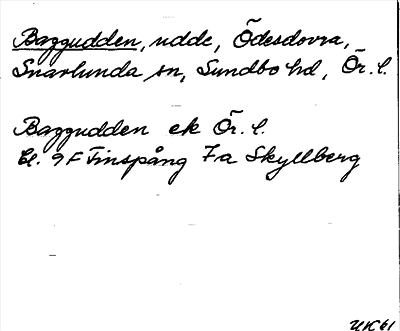 Baggudden, udde, Ödesdovra,
Snavlunda sn, Sundbo hd, Ör. l.
Baggudden ek Ör. l.
bl. 9F Finspång 7a Skyllberg
UK 61